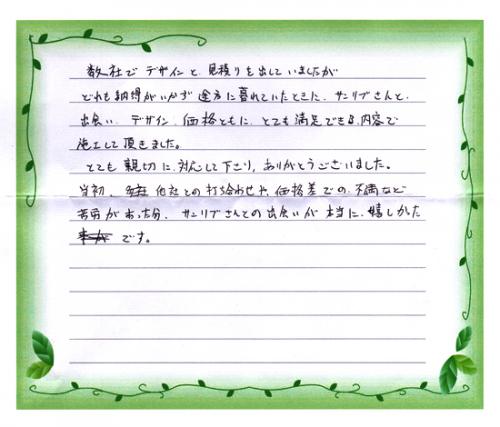 数社でデザインと、見積りを出していましたが
どれも納得がいかず途方に暮れていたときに、サンリブさんと、
出会い、デザイン、価格ともに、とても満足できる内容で
施工して頂きました。
とても親切に、対応して下さり、ありがとうございました。
当初、他社との打ち合わせや、価格差での、不満など
苦労があった分、サンリブさんとの出会いが本当に、嬉しかった
です。